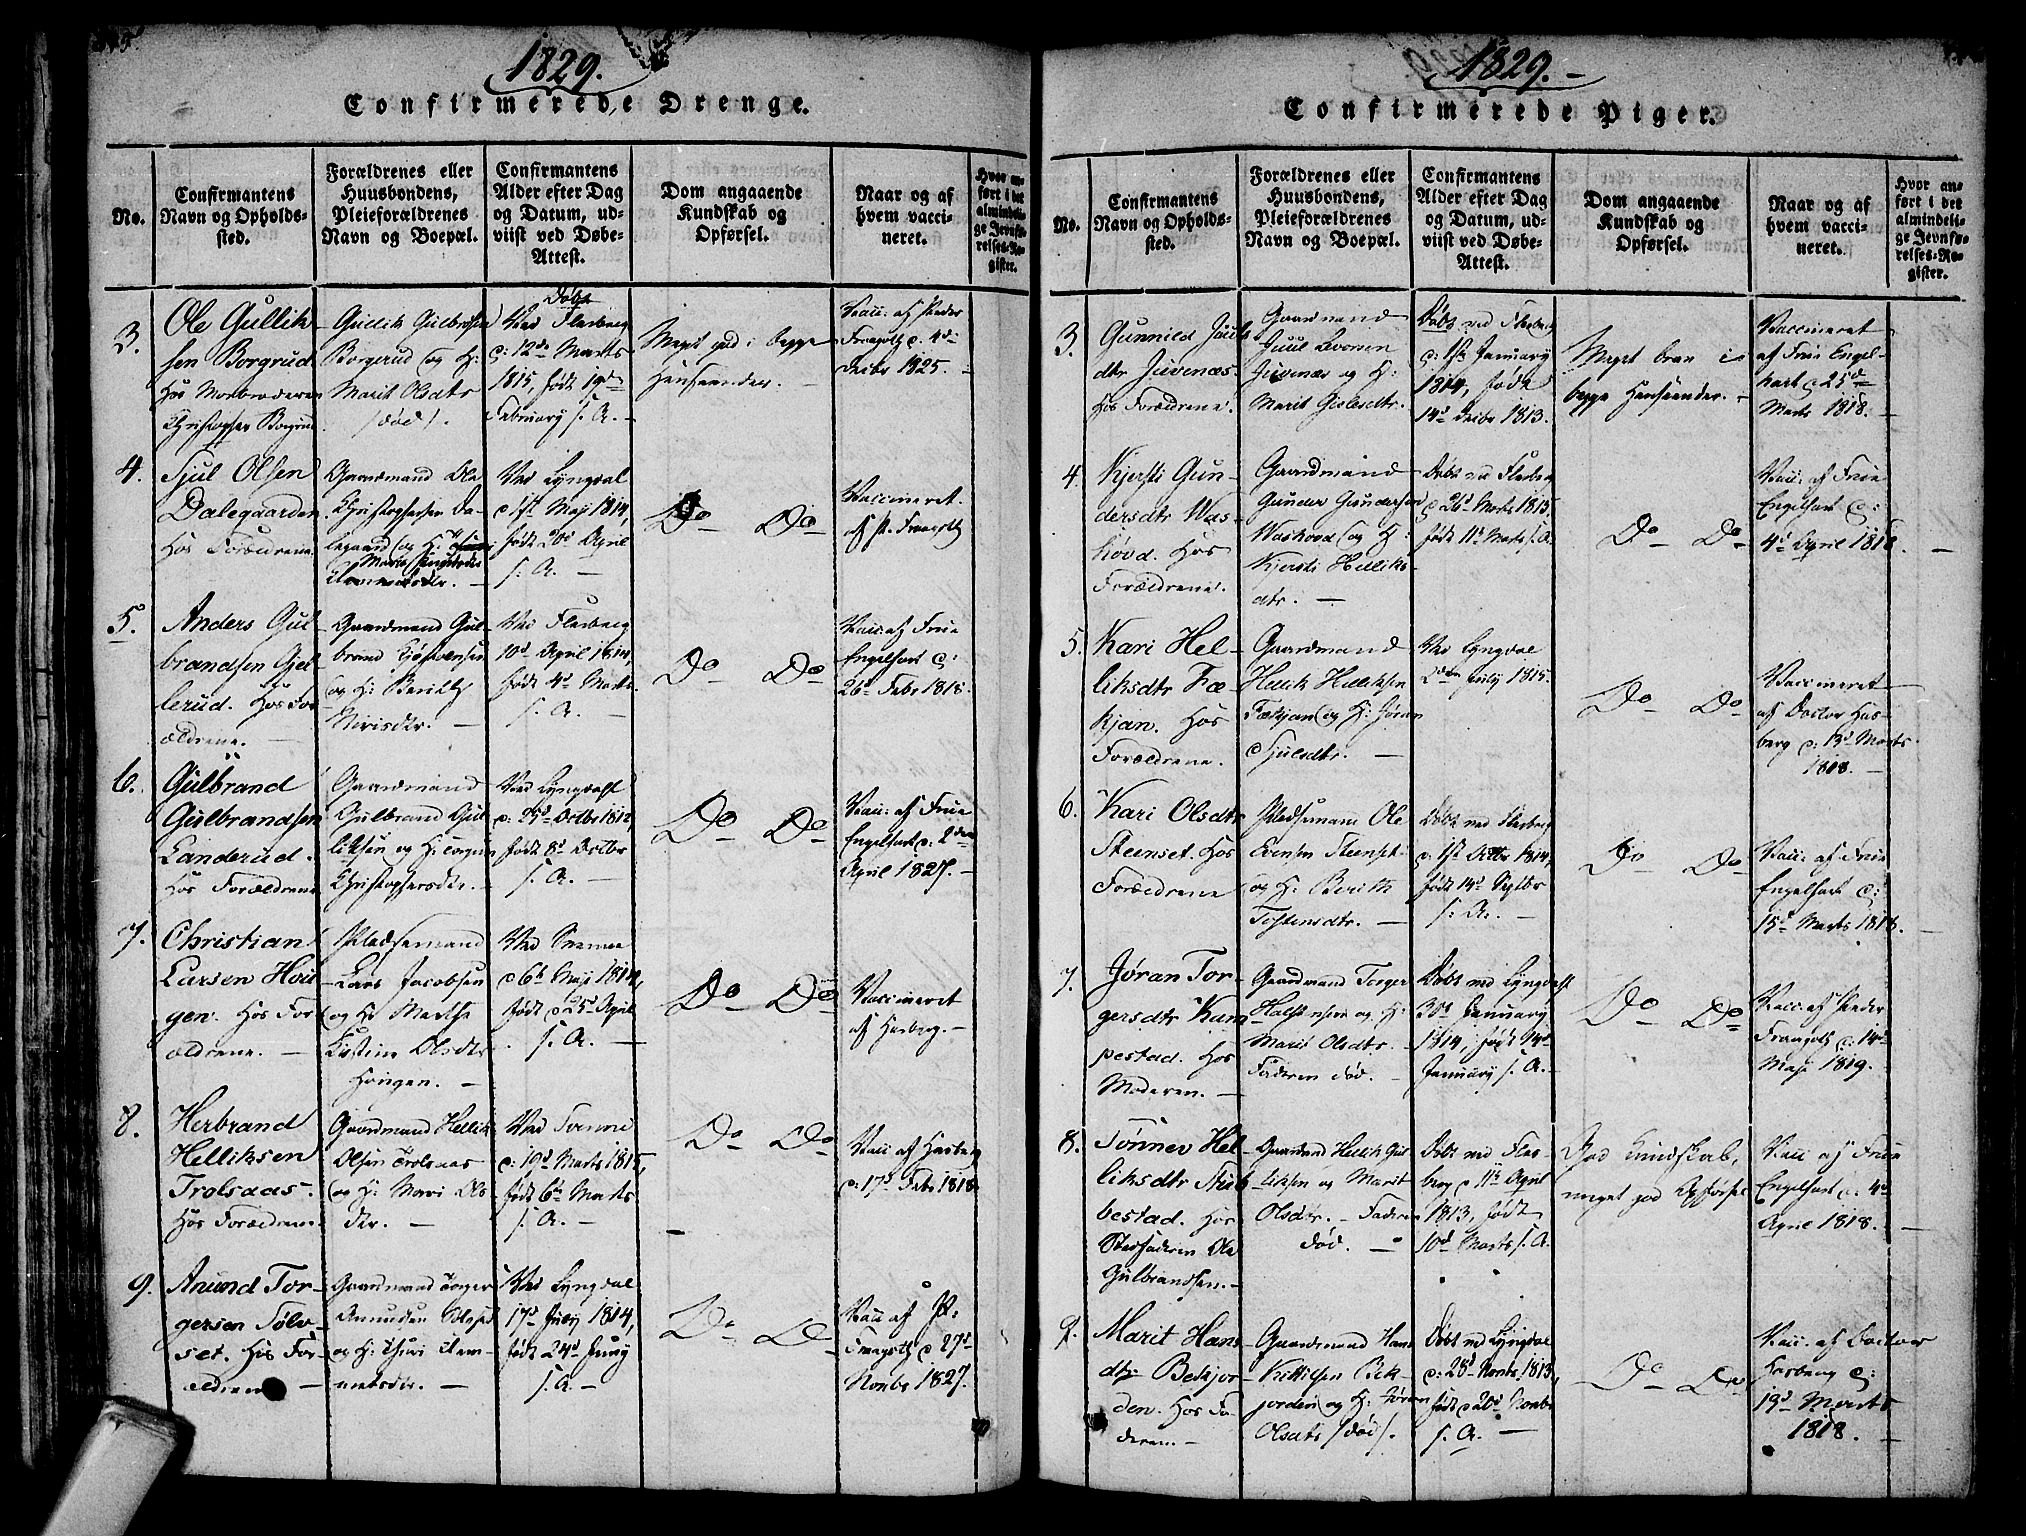 1829.
Confirmerede Drenge.
No.
Confirmantens
Navn og Opholds-
sted.
Forældrenes eller
Huusbondens,
Pleieforældrenes
Navn og Boepæl.
Confirmantens
Alder efter Dag
og Datum, ud-
viist ved Døbe-
Attest.
Dom angaaende
Kundskab og
Opførsel.
Naar og af
hvem vacci-
neret.
Hvor an-
ført i det
almindeli-
ge Jevnfø-
relses-Re-
gister.
3.
Ole Gullik-
sen Borgrud
Hos Morbroderen
Christopher Borgrud.
Gullik Gulbrandsen
Borgerud og H:
Marit Olsdtr
/død/.
Døbt
Ved Flesberg
d: 12te Marts
1815, født 19d
February s. A. –
Meget god i begge
Henseender. –
Vacc: af Peder
d: 4de
Decbr 1825. –
4.
Sjul Olsen
Dalegaarden
Hos Forældrene.
Gaardmand Ole
Christophersen Da-
legaard og H:
Ved Lyngdal
d 1st Maj 1814,
født 20d April
s. A. –
Do – Do
Vaccineret
af
5.
Anders Gul-
brandsen Gjel-
lerud. Hos For-
ældrene. –
Gaardmand Gul-
brand
og H: Berith
Ved Flesberg
10d April 1814,
født 4d Marts
s. A. –
Do – Do
Vacc: af Frue
Engelhart d:
26d Febr 1818.
6.
Gulbrand
Gulbrandsen
Landerud.
Hos Forældrene
Gaardmand
Gulbrand Gul-
liksen og H:
Christophersdtr. –
Ved Lyngdal
Octbr 1812,
født 8d Octbr
s. A. –
Do – Do –
Vacc: af Frue
Engelhart d: 2den
April 1827. –
7.
Christian
Larsen Hou-
gen. Hos For-
ældrene. –
Pladsemand
Lars Jacobsen
og H: Marthe
Kistine Olsdtr
Hougen. –
Ved Svene
d 6te Maj 1814,
født d 25d April
s. A. –
Do – Do
Vaccineret
af Hasberg. –
8.
Herbrand
Helliksen
Trolsaas.
Hos Forældrene.
Gaardmand Hellik
Olsen Trolsaas
og H: Mari Ols-
dtr. –
Ved
d: 19d Marts 1815,
født 6te Marts
s. A. –
Do – Do
Vacc af Hasberg
d: 17d Febr 1818.
9.
Anund Tor-
gersen Tølv-
set. Hos For-
ældrene –
Gaardmand Torger
Amundsen
og H: Thuri Clem-
metsdtr. –
Ved Lyngdal
17d July 1814,
født 24d Juny
s. A. –
Do – Do –
Vacc af
d 27d
Novbr 1827.
1829. –
Confirmerede Piger.
No.
Confirmantens
Navn og Opholds-
sted.
Forældrenes eller
Huusbondens,
Pleieforældrenes
Navn og Boepæl.
Confirmantens
Alder efter Dag
og Datum, ud-
viist ved Døbe-
Attest.
Dom angaaende
Kundskab og
Opførsel.
Naar og af
hvem vacci-
neret.
Hvor an-
ført i det
almindeli-
ge Jevnfø-
relses-Re-
gister.
3.
Gunnild Juuls-
dtr Juvenæs.
Hos Forældrene.
Gaardmand
Juul Evensen
Juvenæs og H:
Marit Gislesdtr.
Døbt ved Flesberg
d: 1st January
1814, født
14d Decbr 1813.
Meget brav i
begge Henseender. –
Vaccineret
af Frue Engel-
hart d 25d
Marts 1818. –
4.
Kjersti Gun-
dersdtr Was-
hovd. Hos
Forældrene.
Gaardmand
Gunder Gundersen
Washovd og H:
Kjersti Helliks-
dtr. –
Døbt ved Flesberg
d 26d Marts 1815
født 11te Marts s. A.
Do – Do –
Vacc: af Frue
Engelhart d:
4d April 1818. –
5.
Kari Hel-
liksdtr Fæ-
kjan. Hos
Forældrene.
Gaardmand
Hellik Helliksen
Fækjan og H: Jøran
Sjulsdtr. –
Ved Lyngdal
2den July 1815.
Do – Do –
Vaccineret
af Doctor Has-
berg d: 13d Marts
1818. –
6.
Kari Olsdtr
Steenset. Hos
Forældrene
Pladsemand Ole
Evensen Steenset
og H: Berith
Tostensdtr. –
Døbt ved Flesberg
d: 1st Octbr 1814,
født 14d Septbr
s. A. –
Do – Do –
Vacc: af Frue
Engelhart d:
15d Marts 1818. –
7.
Jøran Tor-
gersdtr Kum-
pestad. Hos
Moderen. –
Gaardmand Torger
Halstensen og H:
Marit Olsdtr. –
Faderen død. –
Døbt ved Lyngdal
30d January
1814, født 14d
January s. A. –
Do – Do –
Vacc: af Peder
d: 14d
Maj 1819. –
8.
Tønnev Hel-
liksdtr Stub-
bestad. Hos
Stedfaderen Ole
Gulbrandsen. –
Gaardmand Hellik Gul-
liksen og Marit
Olsdtr. – Faderen
død. –
Døbt ved Fles-
berg d 11te April
1813, født
10d Marts s. A.
God Kundskab,
meget god Opførsel
Vacc af Frue
Engelhart d: 4d
April 1818. –
9.
Marit Hans-
dtr Bekjor-
den. Hos Fa-
deren. –
Gaardmand Hans
Kittilsen Bek-
jorden og H: Jøran
Olsdtr /død/.
Døbt ved Lyngdal
d: 28d Novbr 1813,
født d 20d Novbr
s. A. –
Do – Do –
Vacc: af Doctor
Hasberg d:
19d Marts
1818. –